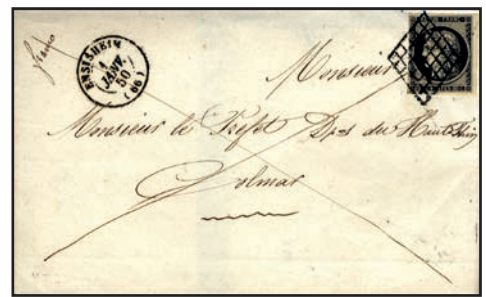 franco
ENSISHEIM
1
JANV.
50
(66)
Monsieur
Monsieur le Préfet Dpt du Haut Rhin
Colmar